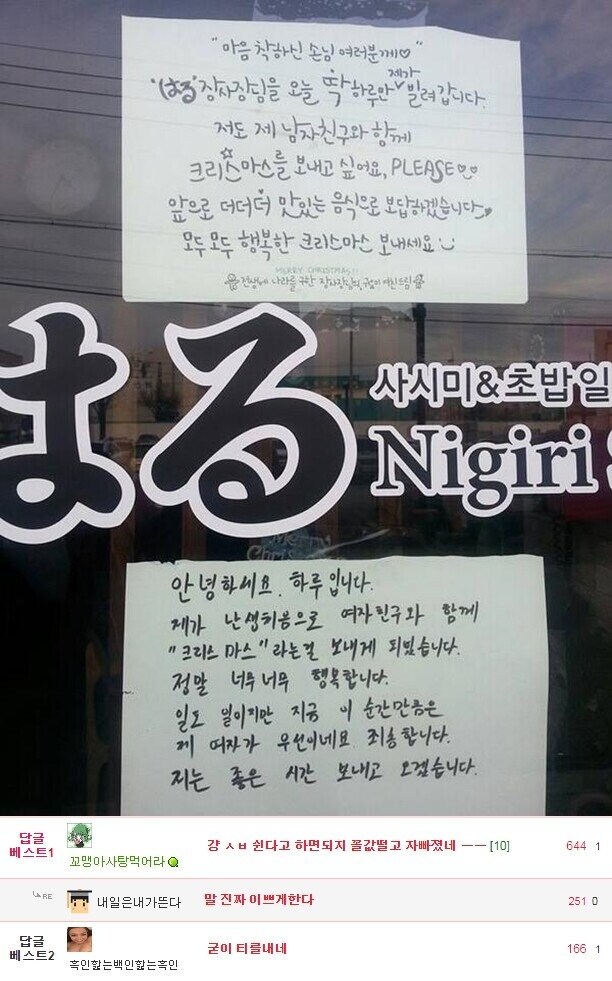 "마음 착하신 손님 여러분께♡"
'はる' 장사장님을 오늘 딱 하루만 제가 빌려 갑니다.
저도 제 남자친구와 함께
크리스마스를 보내고 싶어요, PLEASE♡♡
앞으로 더더더 맛있는 음식으로 보답하겠습니다
모두모두 행복한 크리스마스 보내세요
MERRY CHRISTMAS!!
전생에 나라를 구한 장사장님의, 여친드림
はる
사시미&초밥 일
Nigiri
안녕하세요. 하루입니다.
제가 난생처음으로 여자친구와 함께
"크리스마스"라는걸 보내게 되었습니다.
정말 너무너무 행복합니다.
일도 일이지만 지금 이 순간만큼은
제 여자가 우선이네요 죄송합니다.
저는 좋은 시간 보내고 오겠습니다.
답글 베스트1 꼬맹아사탕먹어라 걍 ㅅㅂ 쉰다고 하면되지 꼴값떨고 자빠졌네 ㅡㅡ [10] 644 1
RE 내일은내가뜬다 말 진짜 이쁘게한다 251 0
답글 베스트2 흑인핥는백인핥는흑인 굳이 티를내네 166 1